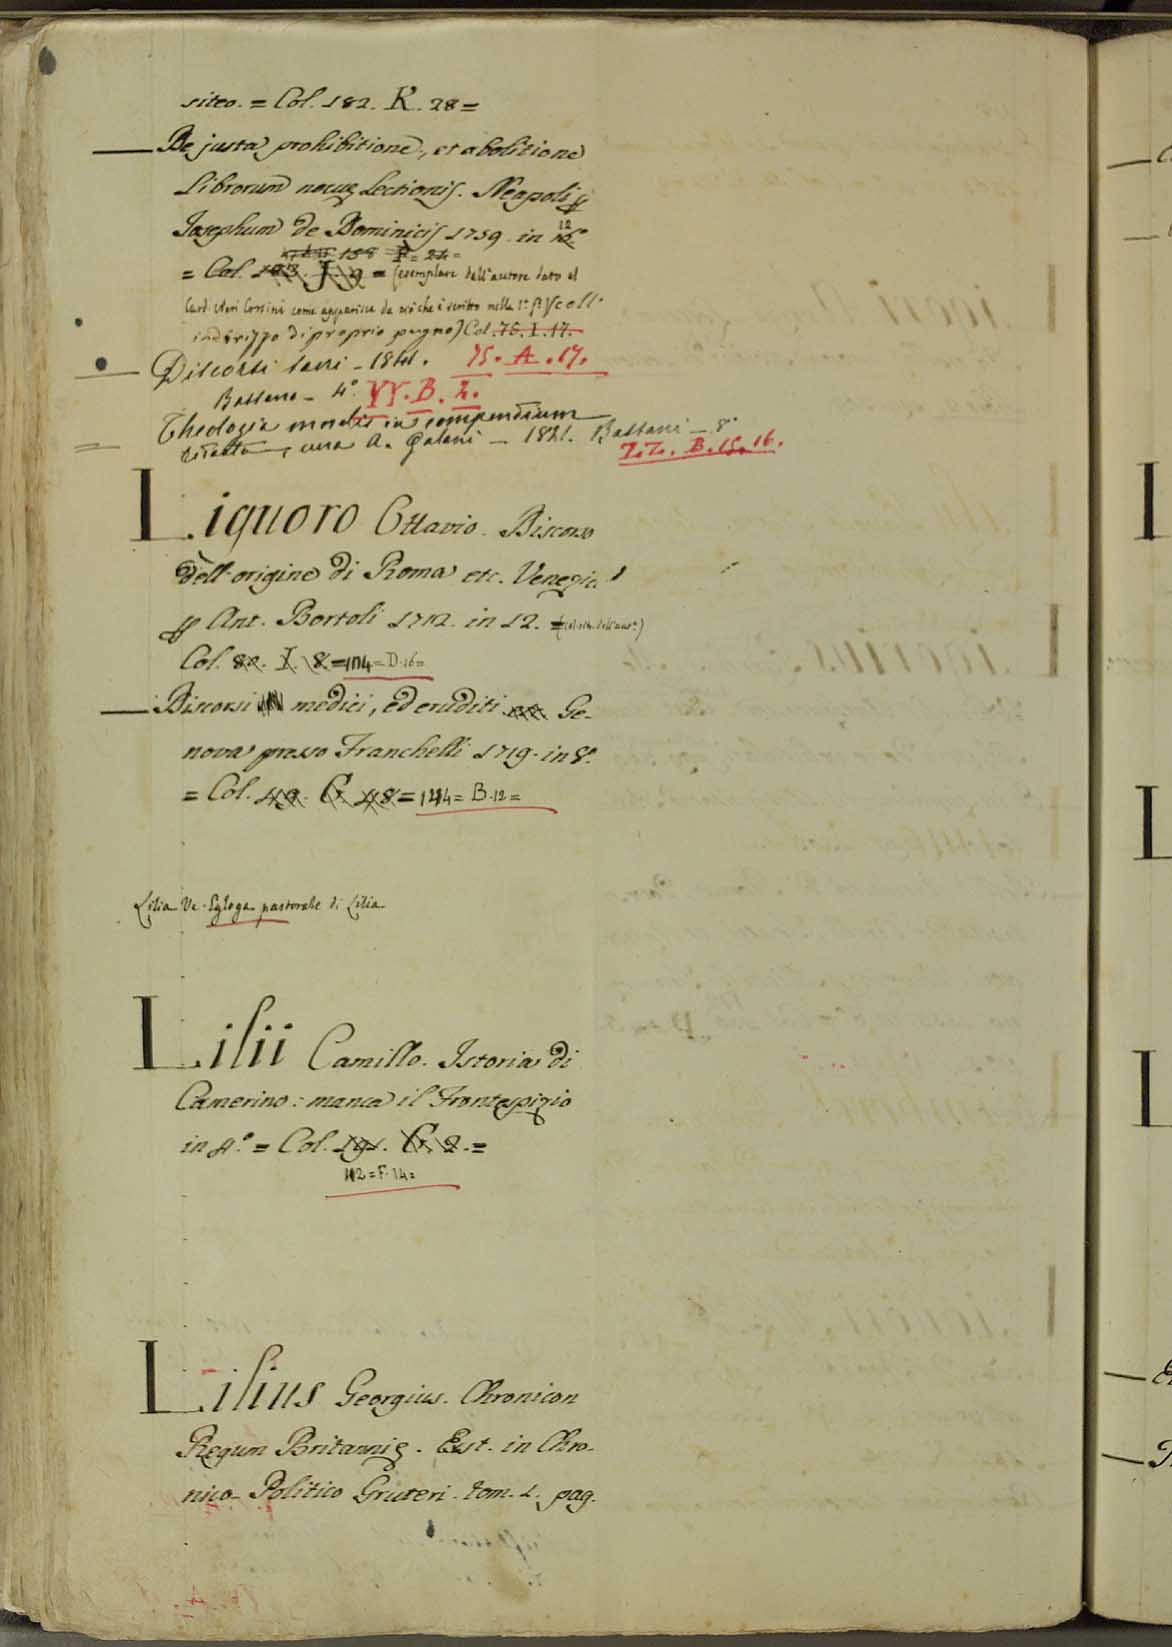 siteo. = Col. 182. K. 28 =
De justa prohibitione, et abolitione
Librorum nocuę Lectionis. Neapoli
Josephum de Dominicis 1759. in 12°
158 P = 24 =
= Col. J. 9 = (esemplare dell'autore dato al
Card. Neri Corsini come apparisce da ciò che è scritto nella 1ª
indirizzo di proprio pugno) Col. 75. I. 17.
Discorsi sacri - 1841. 75. A. 17.
Bassano - 4° YY. B. 2.
Theologia moralis in compendium
redacta, cura A. Galani - 1821. Bassani - 8°
Z.Z. B. 15. 16.
Liquoro Ottavio. Discorso
dell'origine di Roma etc. Venezia
Ant. Bortoli 1712. in 12.
Col. 80. I. 8. = 174 = D. 16 =
Discorsi medici, ed eruditi Ge-
nova presso Franchelli 1719. in 8°.
= Col. 49. G. 48 = 124 = B. 12 =
Lilia Ve. Egloga pastorale di Lilia
Lilii Camillo. Istoria di
Camerino: manca il Frontespizio
in 4.° = Col. 191. G. 2. =
112 = F. 14 =
Lilius Georgius. Chronicon
Regum Britannię. Est. in Chro-
nico Politico Gruteri. tom. 1. pag.